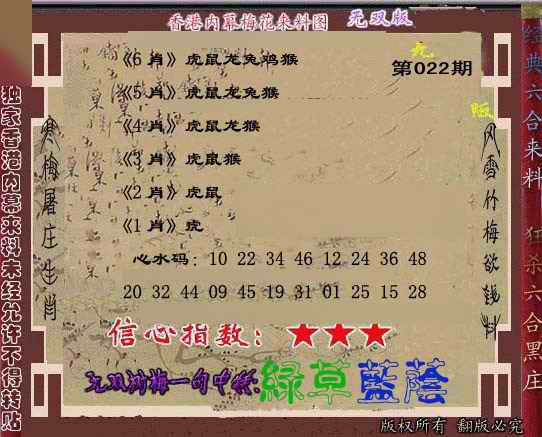 香港内幕梅花来料图 无双版
无
版
第022期
《6 肖》虎鼠龙兔鸡猴
《5 肖》虎鼠龙兔猴
《4 肖》虎鼠龙猴
《3 肖》虎鼠猴
《2 肖》虎鼠
《1 肖》虎
心水码：10 22 34 46 12 24 36 48
20 32 44 09 45 19 31 01 25 15 28
信心指数：★★★
无双浏梅一句中特:綠草藍蔭
版权所有 翻版必究
独家香港内幕来料未经允许不得转贴
寒梅屠庄生肖
风雪竹梅欲钱料
经典六合来料
狂杀六合黑庄